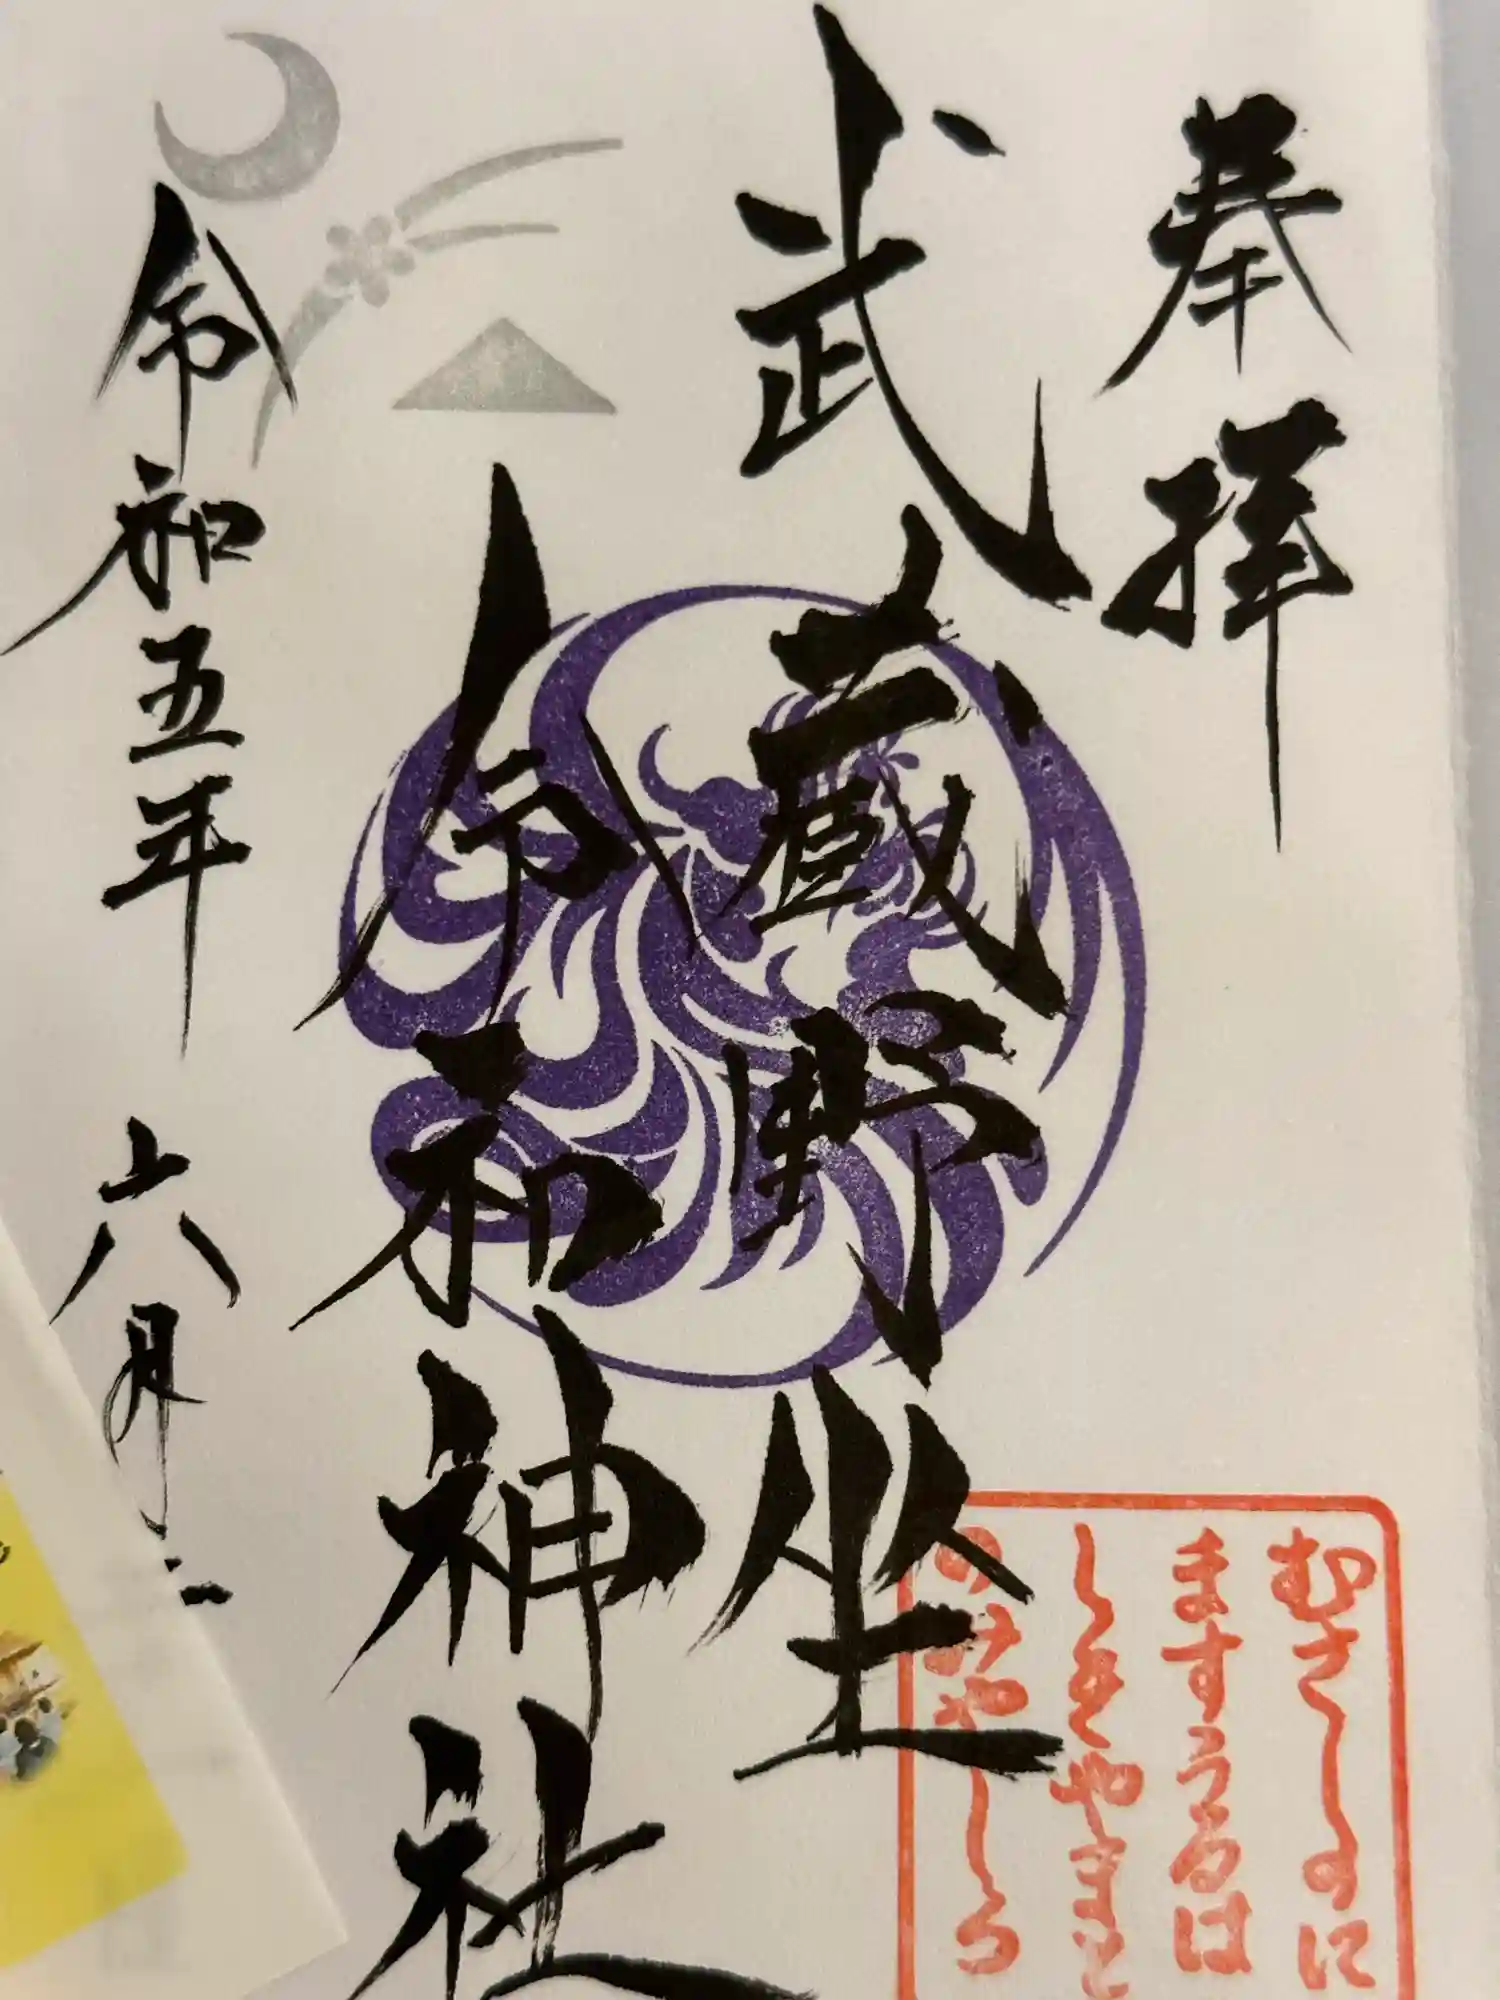 奉拝
武蔵野坐
令和神社
令和五年 六月二
むさしのに
ますうるは
しきやまと
のみやしろ